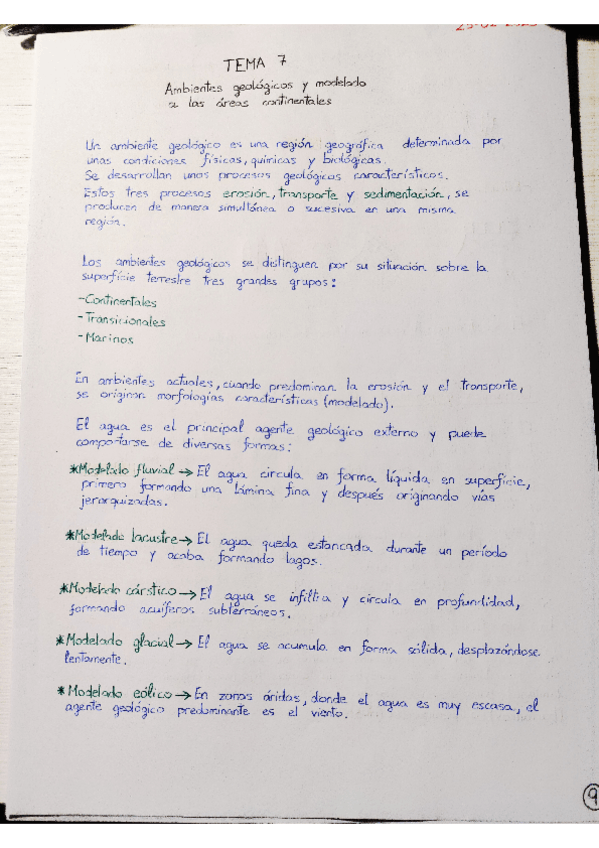 TEMA 7
Ambientes geológicos y modelado
a las áreas continentales
Un ambiente geológico es una región geográfica determinada por
unas condiciones físicas, químicas y biológicas.
Se desarrollan unos procesos geológicos característicos.
Estos tres procesos erosión, transporte y sedimentación, se
producen de manera simultánea o sucesiva en una misma
región.
Los ambientes geológicos se distinguen por su situación sobre la
superfície terrestre tres grandes grupos:
-Continentales
-Transicionales
-Marinos
En ambientes actuales, cuando predominan la erosión y el transporte,
se originan morfologías características (modelado).
El agua es el principal agente geológico externo y puede
comportarse de diversas formas:
*Modelado fluvial → El agua circula en forma líquida en superficie,
primero formando una lámina fina y después originando vías
jerarquizadas.
*Modelado lacustre → El agua queda estancada durante un período
de tiempo y acaba formando lagos.
*Modelado cárstico → El agua se infiltra y circula en profundidad,
formando acuíferos subterráneos.
*Modelado glacial → El agua se acumula en forma sólida, desplazándose
lentamente.
*Modelado eólico → En zonas áridas, donde el agua es muy escasa, el
agente geológico predominante es el viento.
9